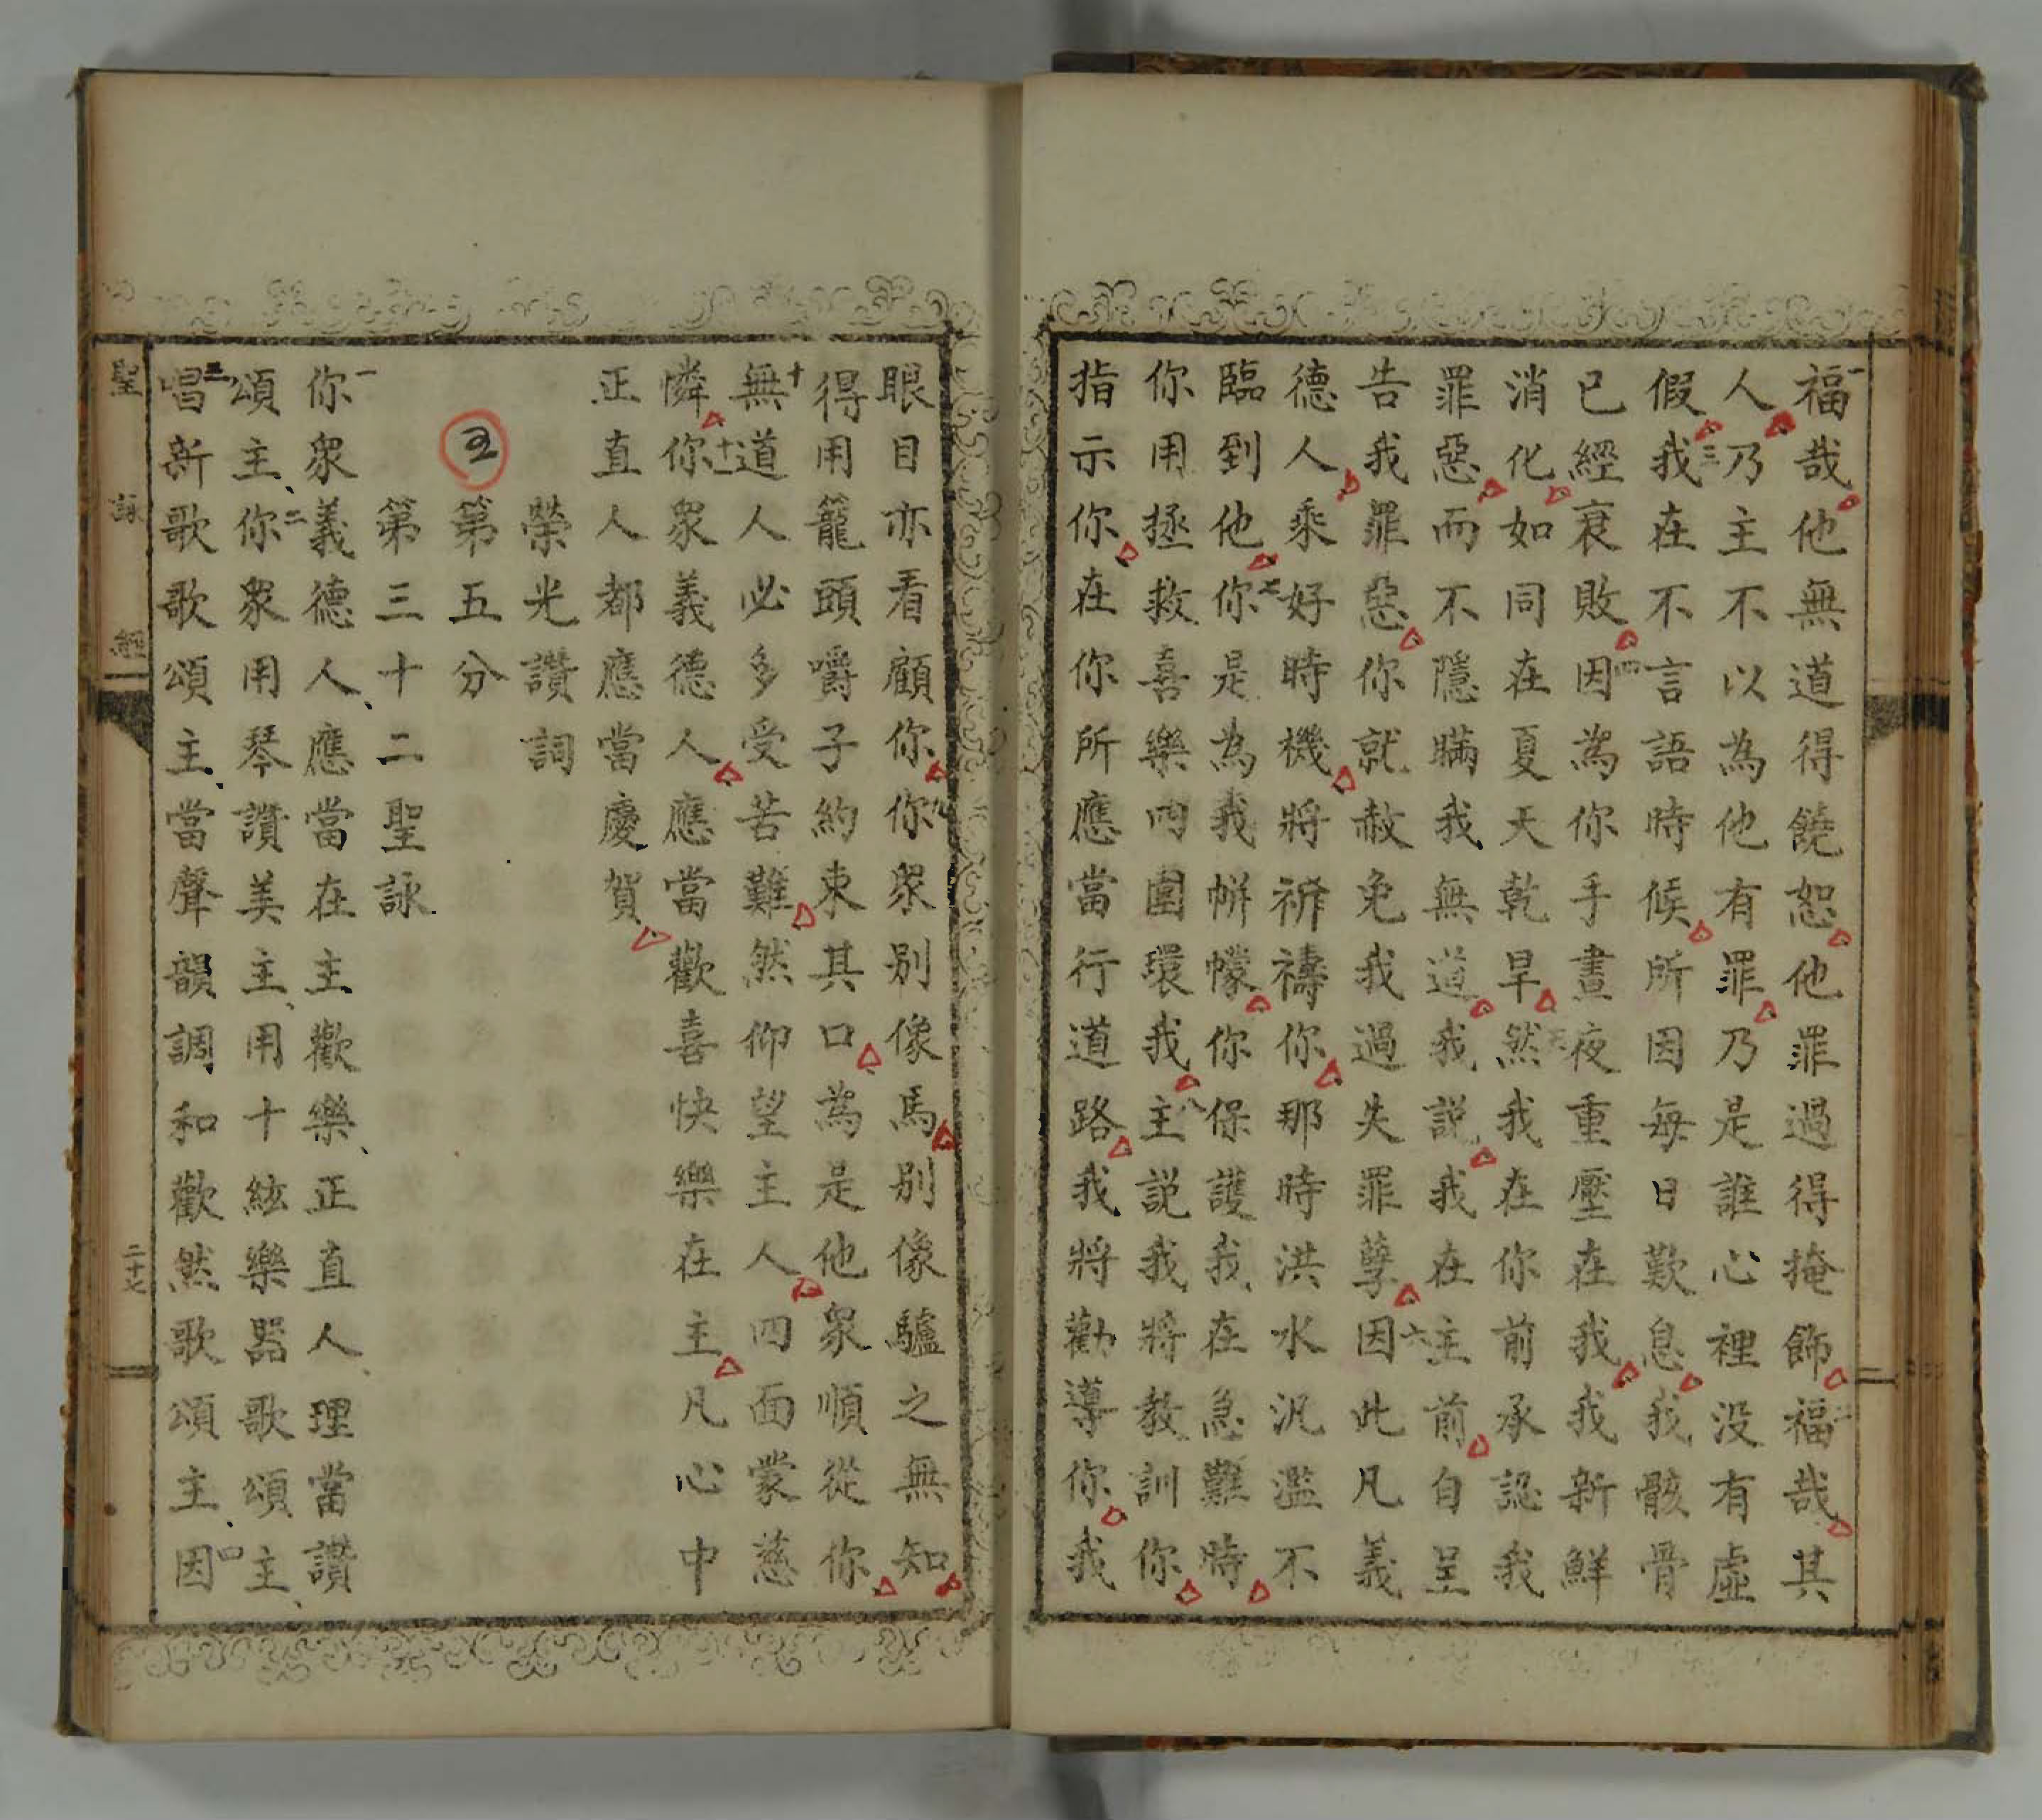 一福哉他無道得饒恕他罪過得掩飾二福哉其
人乃主不以為他有罪乃是誰心裡没有虛
假三我在不言語時候所因每日歎息我骸骨
已經衰敗四因為你手晝夜重壓在我我新鮮
消化如同在夏天乾旱五然我在你前承認我
罪惡而不隱瞞我無道我説我在主前自呈
告我罪惡你就赦免我過失罪孽六因此凡義
德人乘好時機將祈禱你那時洪水汎濫不
臨到他七你是為我帡幪你保護我在急難時
你用拯救喜樂四圍環我八主説我將教訓你
指示你在你所應當行道路我將勸導你我
眼目亦看顧你九你衆别像馬别像驢之無知
得用籠頭嚼子約束其口為是他衆順從你
十無道人必多受苦難然仰望主人四面蒙慈
憐十一你衆義德人應當歡喜快樂在主凡心中
正直人都應當慶賀
榮光讚詞
第五分
第三十二聖詠
一你衆義德人、應當在主歡樂、正直人、理當讚
頌主、二你衆用琴讚美主、用十絃樂器歌頌主、
三唱新歌歌頌主、當聲韻調和歡然歌頌主、四因
聖詠經
二十七